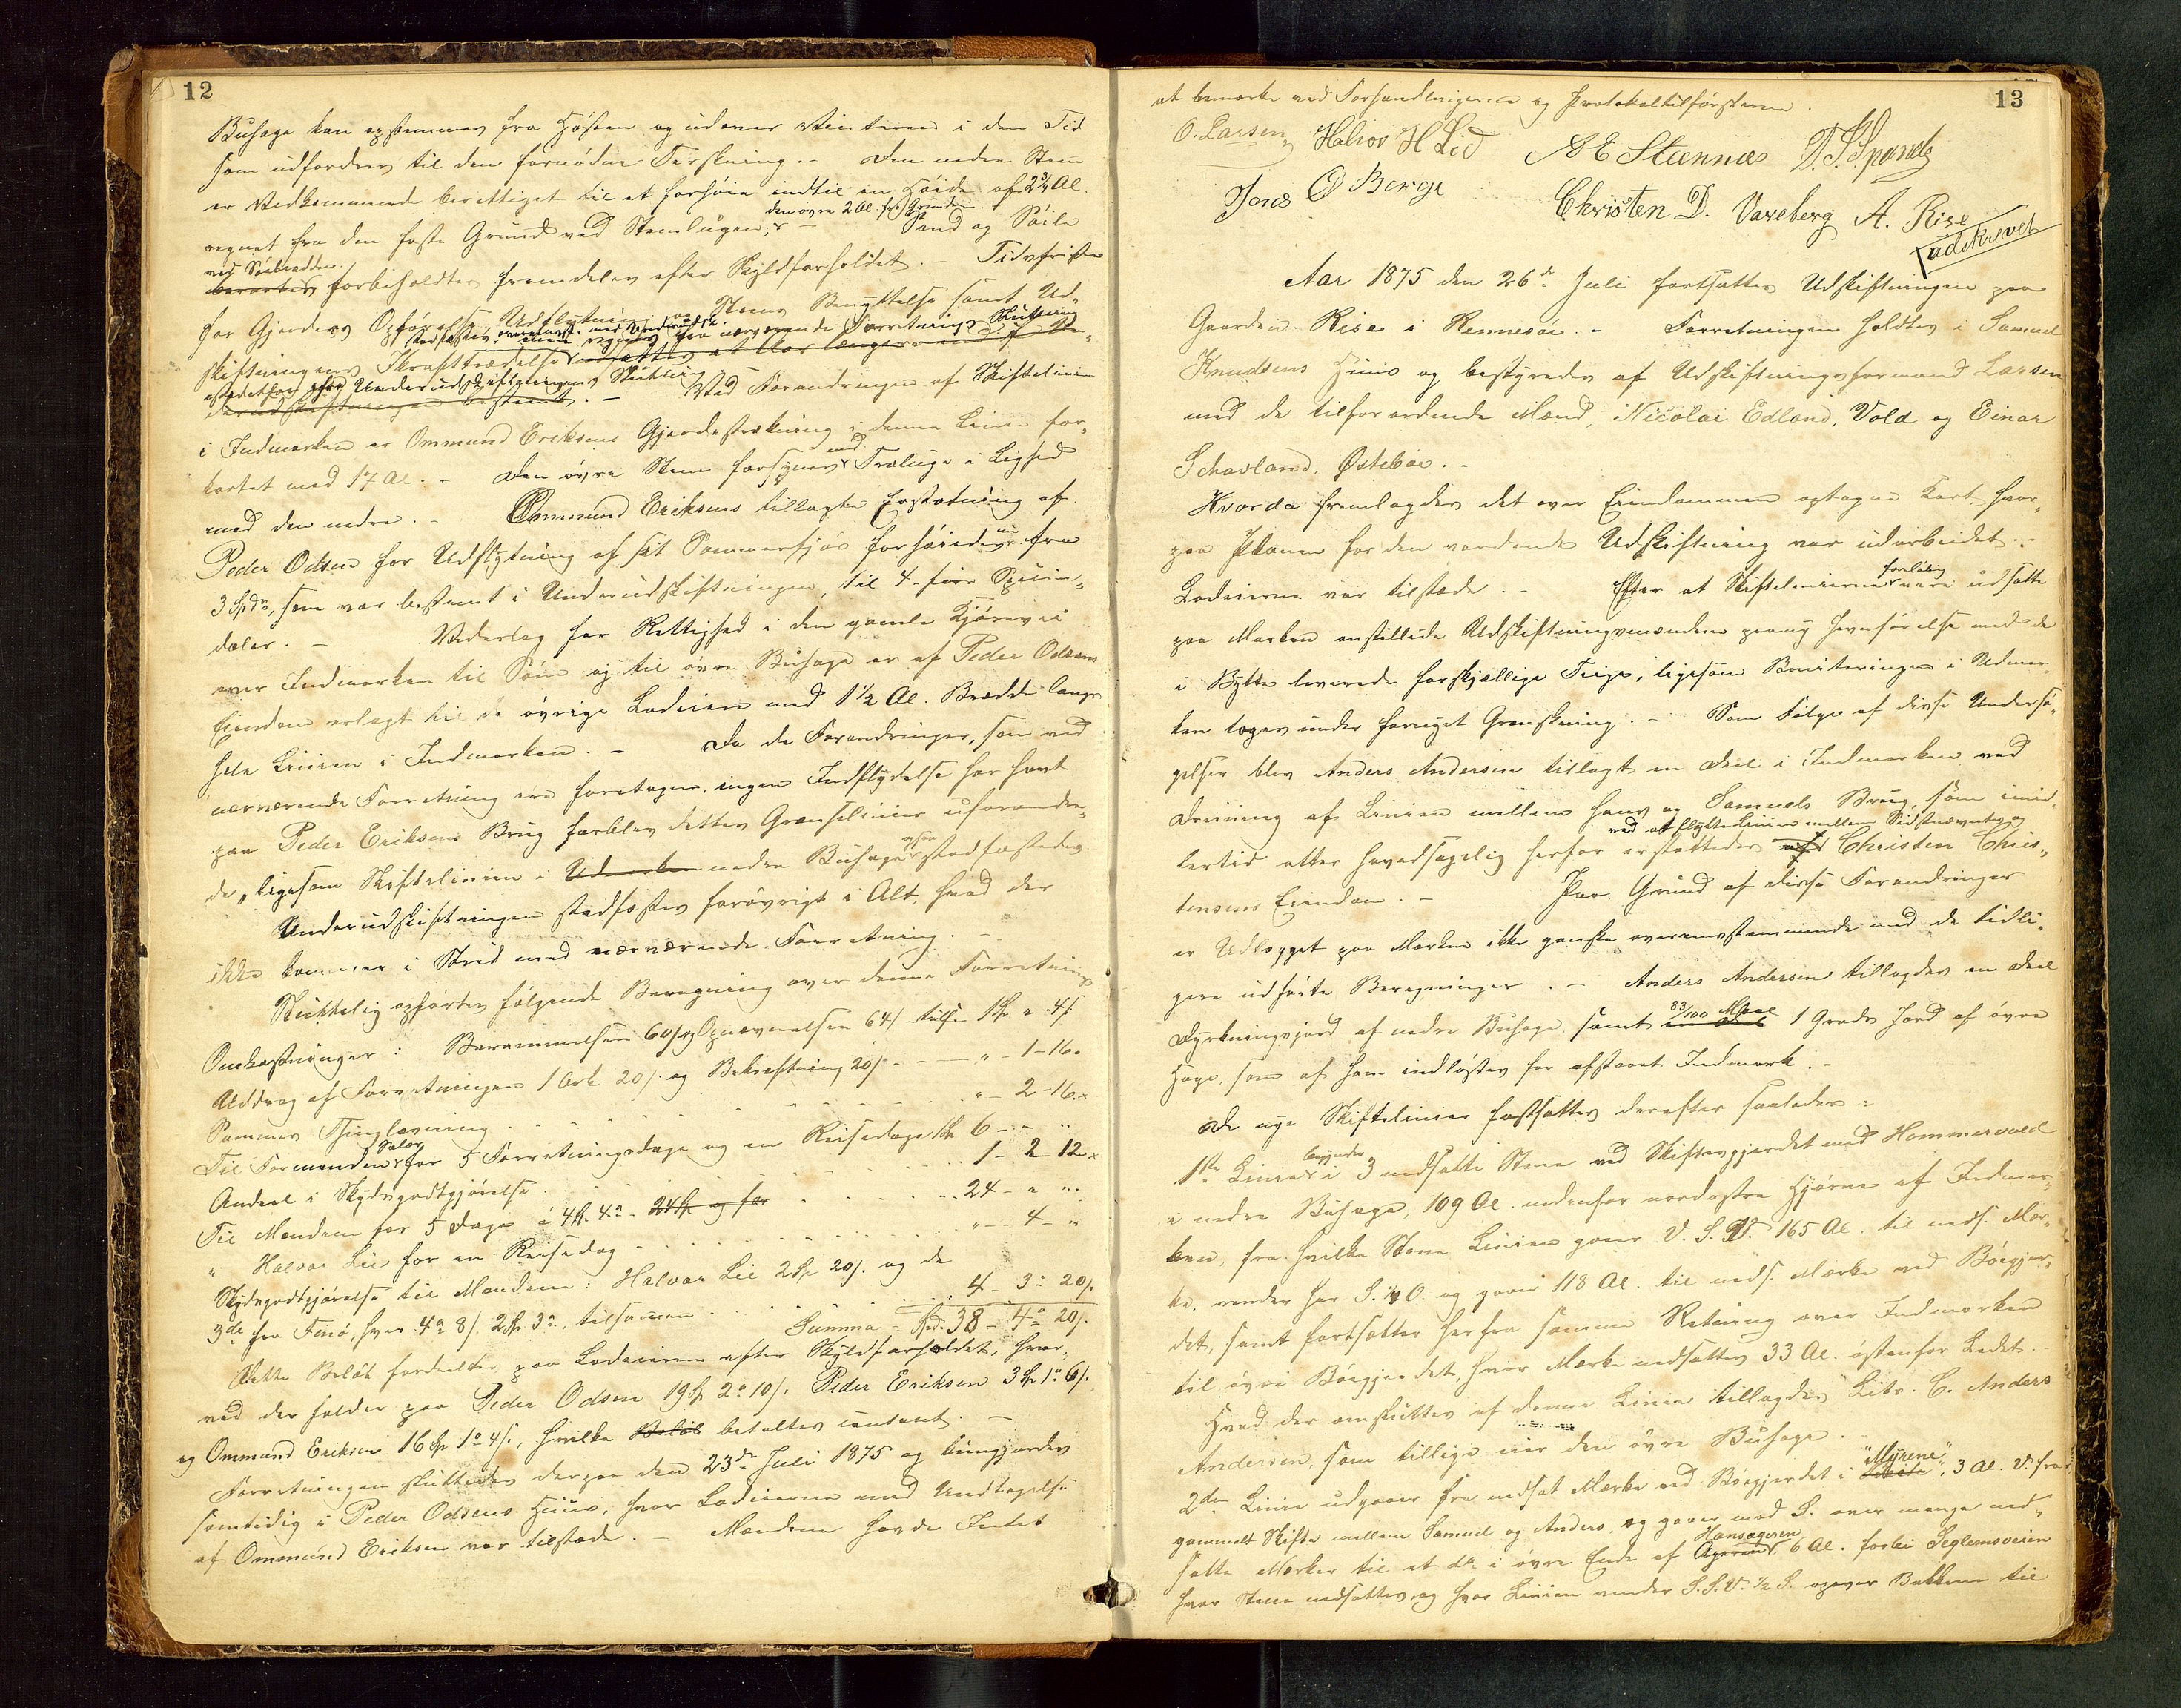 12
Buhage kan opstemmes fra Høsten og udover Vinteren i den Tid
som udfordres til den fornødne Tærskning. - Den nedre Stem
er Vedkommende berettiget til at forhøie indtil en Høide af 2 3/4 Al.
den øvre 2 Al. fra Grunden
regnet fra den faste Grund ved Stemlugen, - Sand og Søile
ved Søbredden.
forbeholdtes fremdeles efter Skyldforholdet. - Tidsfristen
for Gjerders Opførelse, Udflytning og Stems Benyttelse samt Ud-
regnes fra nærværende Forretnings Slutning
skiftningens Ikrafttrædelse
istedetfor fra Underudskiftningens Slutning
derudskiftningen bestemt. - Ved Forandringen af Skiftelinien
i Indmarken er Ommund Eriksens Gjerdestrækning i denne Linie for-
kortet med 17 Al. - Den øvre Stem forsynes med Træluge i Lighed
med den nedre. - Ommund Eriksens tillagte Erstatning af
Peder Odsen for Udflytning af sit Sommerfjøs forhøiedes nu fra
3 Spdr, som var bestemt i Underudskiftningen, til 4 - fire Specie-
daler. - Vederlag for Rettighed i den gamle Kjørevei
over Indmarken til Søen og til øvre Buhage er af Peder Odsens
Eiendom erlagt til de øvrige Lodeiere med 1 1/2 Al. Bredde langs
hele Linien i Indmarken. - Da de Forandringer, som ved
nærværende Forretning ere foretagne, ingen Indflydelse har havt
paa Peder Eriksens Brug forblev dettes Grænselinier uforandre-
de, ligesom Skiftelinien i Udmarken nedre Buhage ogsaa stadfæstedes
Underudskiftningen stadfæstes forøvrigt i Alt, hvad der
ikke kommer i Strid med nærværende Forretning. -
Sluttelig opførtes følgende Beregning over denne Forretnings
Omkostninger: Berammelsen 60/ og Opnævnelsen 64/ tils. 1 Sp " - 4/
Uddrag af Forretningen 1 Ark 20/. og Bekræftning 20/ - - " - 1 - 16.
Sammes Thinglæsning - - - " - 2 - 16.
Til Formanden Salær for 5 Forretningsdage og en Reisedag Sp 6 - - "
Andeel i Skydsgodtgjørelse - - - 1 - 2 - 12
Til Mændene for 5 Dage á 4 Sp. 4 - 24 Sp og for - - 24 - " "
" Halvor Lie for en Reisedag - - - " - 4 - "
Skydsgodtgjørelse til Mændene: Halvor Lie 2 Sp 20/. og de
3de fra Finnø, hver 4 8/. 2 Sp. 3, tilsammen - - 4 - 3 - 20/.
Summa - Spd. 38 - 4 - 20/.
Dette Beløb fordeeltes paa Lodeierne efter Skyldforholdet, hvor-
ved der falder paa Peder Odsen 19 Sp 2 10/. Peder Eriksen 3 Sp 1 6/.
og Ommund Eriksen 16 Sp 1 4/., hvilke Beløb betaltes contant. -
Forretningen sluttedes derpaa den 23de Juli 1875 og kungjordes
samtidig i Peder Odsens Huus, hvor Lodeierne med Undtagelse
af Ommund Eriksen var tilstede. - Mændene havde Intet
13
at bemærke ved Forhandlingerne og Protokoltilførslerne.
O. Larsen, Halvor H Lid A E Steennæs
Jens O Berge Christen D. Vareberg A. Rise
udskrevet
Aar 1875 den 26de Juli fortsattes Udskiftningen paa
Gaarden Rise i Rennesøe. - Forretningen holdtes i Samuel
Knudsens Huus og bestyredes af Udskiftningsformand Larsen
med de tilforordnede Mænd, Nicolai Edland, Vold og Einar
Schavland, Østebøe. -
Hvorda fremlagdes det over Eiendommen optagne Kart, hvor-
paa Planen for den vordende Udskiftning var udarbeidet. -
Lodeierne var tilstæde. - Efter at Skiftelinierne foreløbig vare udsatte
paa Marken anstillede Udskiftningsmændene paany Jevnførelse med de
i Bytte værende forskjellige Teige, ligesom Boniteringen i Udmar-
ken toges under fornyet Granskning. - Som Følge af disse Undersø-
gelser blev Anders Andersen tillagt en Deel i Indmarken ved
Dreining af Linien mellem hans og Samuels Brug, som imid-
ved at flytte Linien mellem Sidstnævntes og
lertid atter hovedsagelig herfor erstattedes af Christen Chris-
tensens Eiendom. - Paa Grund af disse Forandringer
er Udlægget paa Marken ikke ganske overensstemmende med de tidli-
gere udførte Beregninger. - Anders Andersen tillagdes en Deel
Dyrkningsjord af nedre Buhage samt 83/100 Maal 1 Grads Jord af øvre
Hage, som af ham indløstes for afstaaet Indmark. -
De nye Skiftelinier fastsattes derefter saaledes:
1ste Linie begynder i 3 nedsatte Stene ved Skiftesgjerdet med Hommersvold
i nedre Buhage, 109 Al. nedenfor nordøstre Hjørne af Indmar-
ken, fra hvilke Stene Linien gaaer V. S. V. 165 Al. til neds. Mær-
ke, vender her S. O. og gaaer 118 Al. til neds. Mærke ved Bøegjer-
det, samt fortsætter herfra samme Retning over Indmarken
til øvre Bøegjerdet, hvor Mærke nedsattes 33 Al. østenfor Ledet. -
Hvad der omsluttes af denne Linie tillagdes Litr. C. Anders
Andersen, som tillige eier den øvre Buhage.
2den Linie udgaaer fra nedsat Mærke ved Bøegjerdet i "Myrene", 3 Al. V. fra
gammelt Skifte mellem Samuel og Anders, og gaaer mod S. over mange ned-
satte Mærker til et do i øvre Ende af Hansageren 6 Al. forbi Seglemsveien
hvor Stene nedsattes, og hvor Linien vender S. S. V. 1/2 S. opover Bakkene til